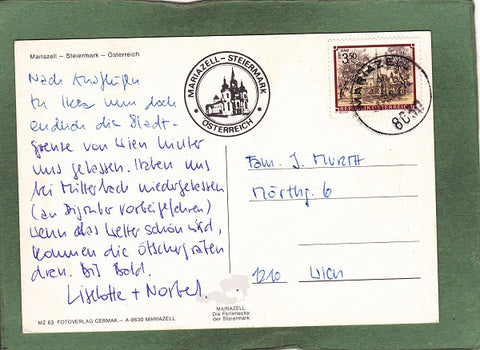 Mariazell – Steiermark – Österreich
Nach
nun doch
endlich die Stadt-
grenze von Wien hinter
uns gelassen. Haben uns
bei Mitterbach niedergelassen
(an vorbeigefahren)
Wenn das Wetter schön wird,
kommen die Ötschergräben
dran. Bis Bald.
Liselotte + Norbert.
MARIAZELL – STEIERMARK
ÖSTERREICH
3.50
REPUBLIK ÖSTERREICH
MARIAZELL
8630
Fam. J. MURTH
1210 Wien
MARIAZELL
Die Ferienecke
der Steiermark
MZ 63 FOTOVERLAG CERMAK – A-8630 MARIAZELL